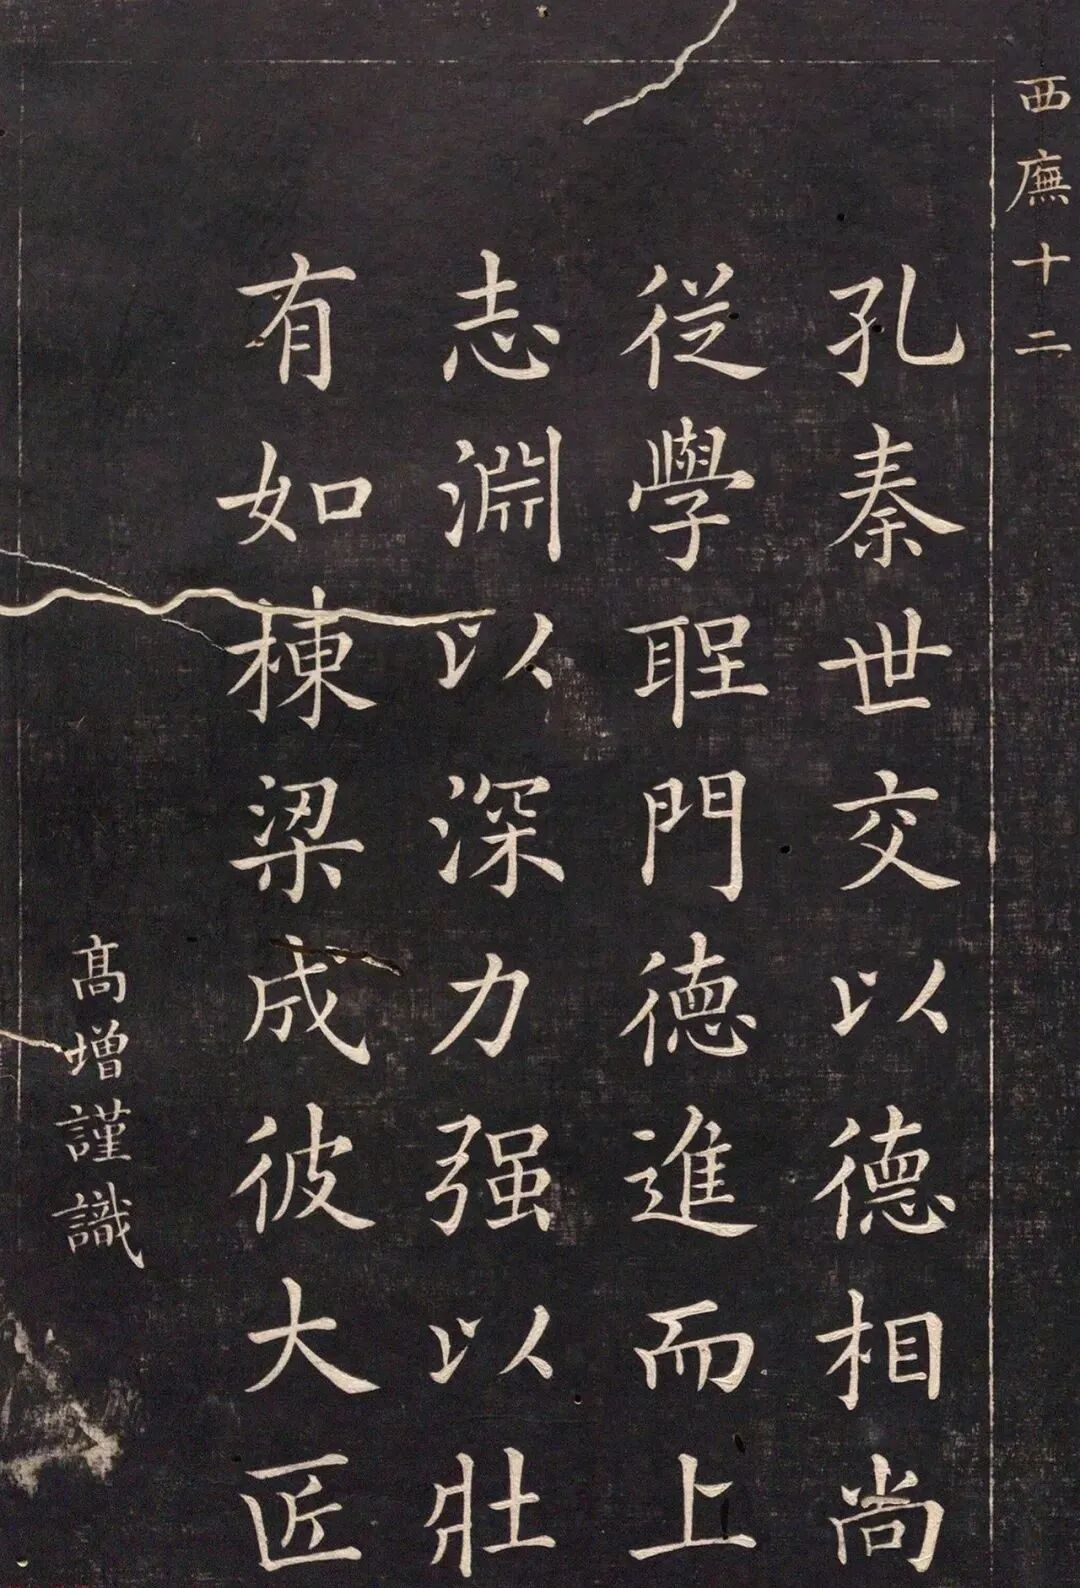 西廡十二
孔秦世交以德相尚
從學聖門德進而上
志淵以深力强以壯
有如棟梁成彼大匠
髙增謹識